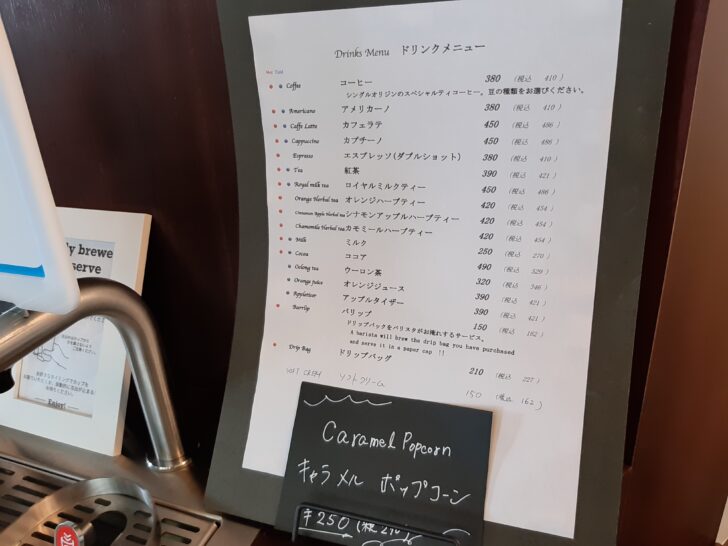 Drinks Menu ドリンクメニュー
Hot Cold
Coffee コーヒー 380 (税込 410)
シングルオリジンのスペシャルティコーヒー。豆の種類をお選びください。
Americano アメリカーノ 380 (税込 410)
Caffe Latte カフェラテ 450 (税込 486)
Cappuccino カプチーノ 450 (税込 486)
Espresso エスプレッソ(ダブルショット) 380 (税込 410)
Tea 紅茶 390 (税込 421)
Royal milk tea ロイヤルミルクティー 450 (税込 486)
Orange Herbal tea オレンジハーブティー 420 (税込 454)
Cinnamon Apple Herbal tea シナモンアップルハーブティー 420 (税込 454)
Chamomile Herbal tea カモミールハーブティー 420 (税込 454)
Milk ミルク 250 (税込 270)
Cocoa ココア 490 (税込 529)
Oolong tea ウーロン茶 320 (税込 346)
Orange juice オレンジジュース 390 (税込 421)
Appletiser アップルタイザー 390 (税込 421)
Barrip バリップ 150 (税込 162)
ドリップバックをバリスタがお淹れするサービス。
A barista will brew the drip bag you have purchased
and serve it in a paper cap !!
Drip Bag ドリップバッグ 210 (税込 227)
ソフトクリーム 150 (税込 162)
Caramel Popcorn
キャラメル ポップコーン
¥250 (税
ly brewe
serve
Enjoy!